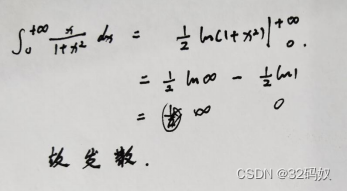 ∫₀^{+∞} x/(1+x²) dx = 1/2 ln(1+x²)|₀^{+∞}.
= 1/2 ln∞ - 1/2 ln1
= ∞ 0
故发散.
CSDN @32码奴